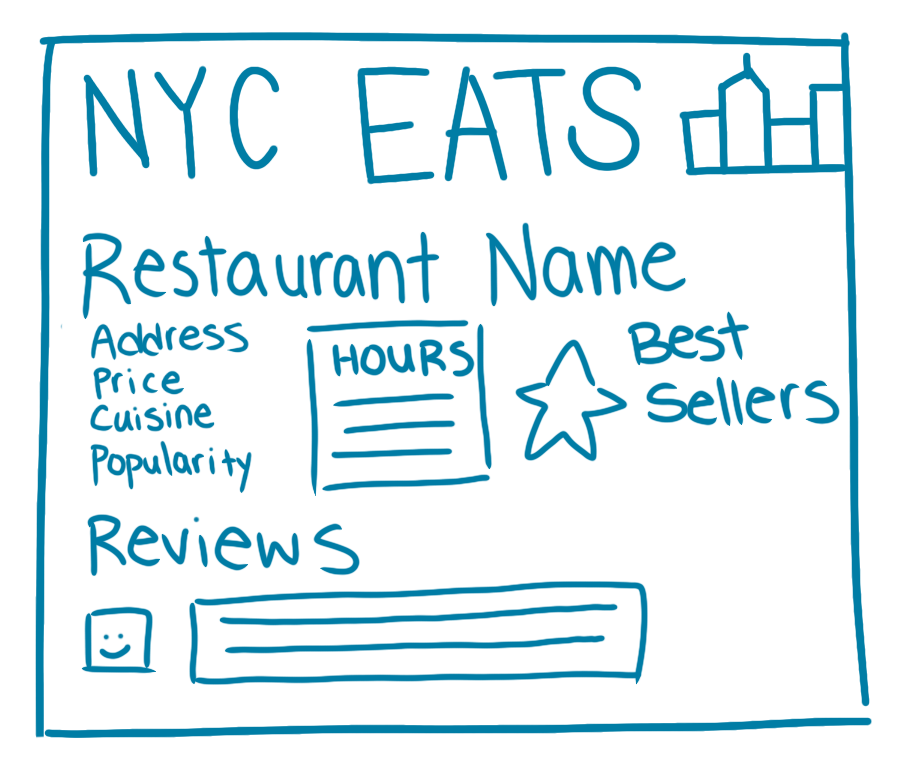 NYC EATS
Restaurant Name
Address
Price
Cuisine
Popularity
HOURS
Best
Sellers
Reviews